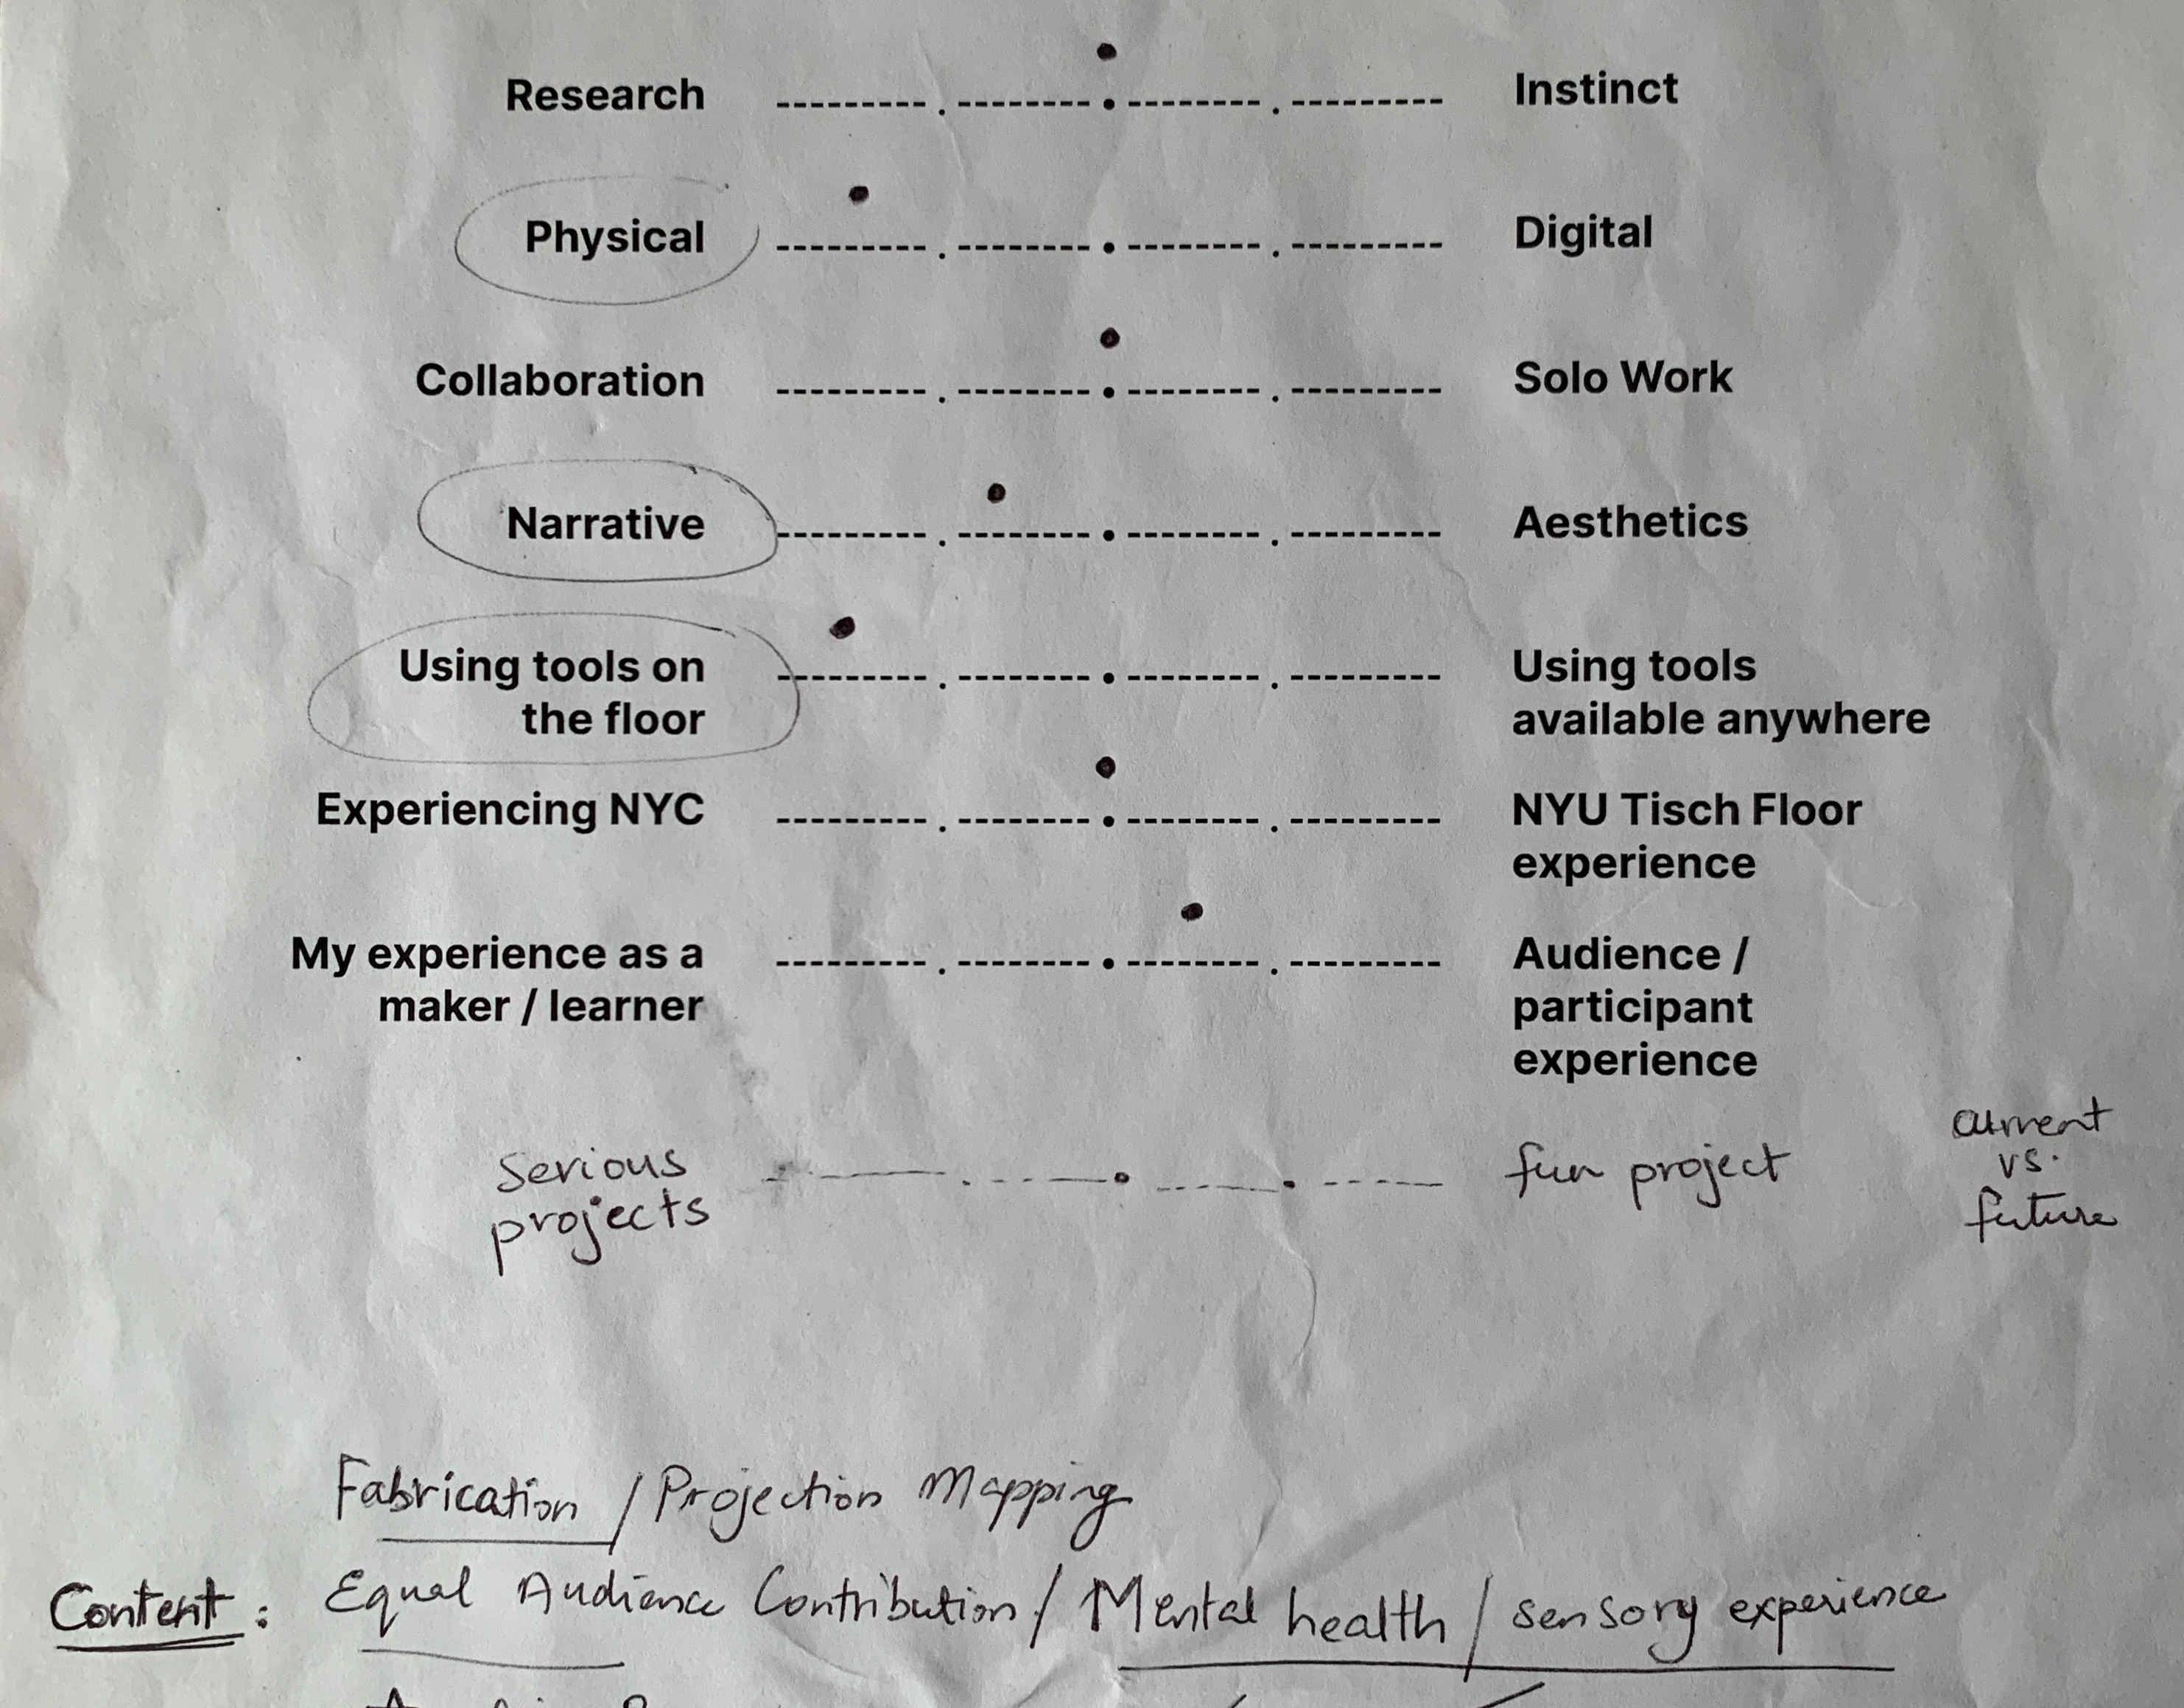 Research --------- . -------- • -------- . --------- Instinct
Physical --------- . -------- • -------- . --------- Digital
Collaboration --------- . -------- • -------- . --------- Solo Work
Narrative --------- . -------- • -------- . --------- Aesthetics
Using tools on --------- . -------- • -------- . --------- Using tools
the floor available anywhere
Experiencing NYC --------- . -------- • -------- . --------- NYU Tisch Floor
experience
My experience as a --------- . -------- • -------- . --------- Audience /
maker / learner participant
experience
Serious fun project current
projects vs.
future
Fabrication / Projection Mapping
Content : Equal Audience Contribution / Mental health / sensory experience